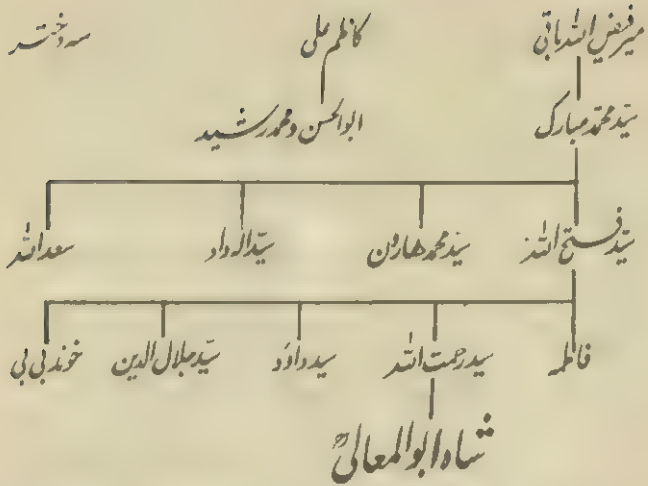 میر فیض اللہ باقی کاظم علی سہ دختر
سید محمد مبارک ابوالحسن و محمد رشید
سید فتح اللہ سید محمد ھارون سید الہ داد سعد اللہ
فاطمہ سید رحمت اللہ سید داؤد سید جلال الدین خوند بی بی
شاہ ابوالمعالیؒ